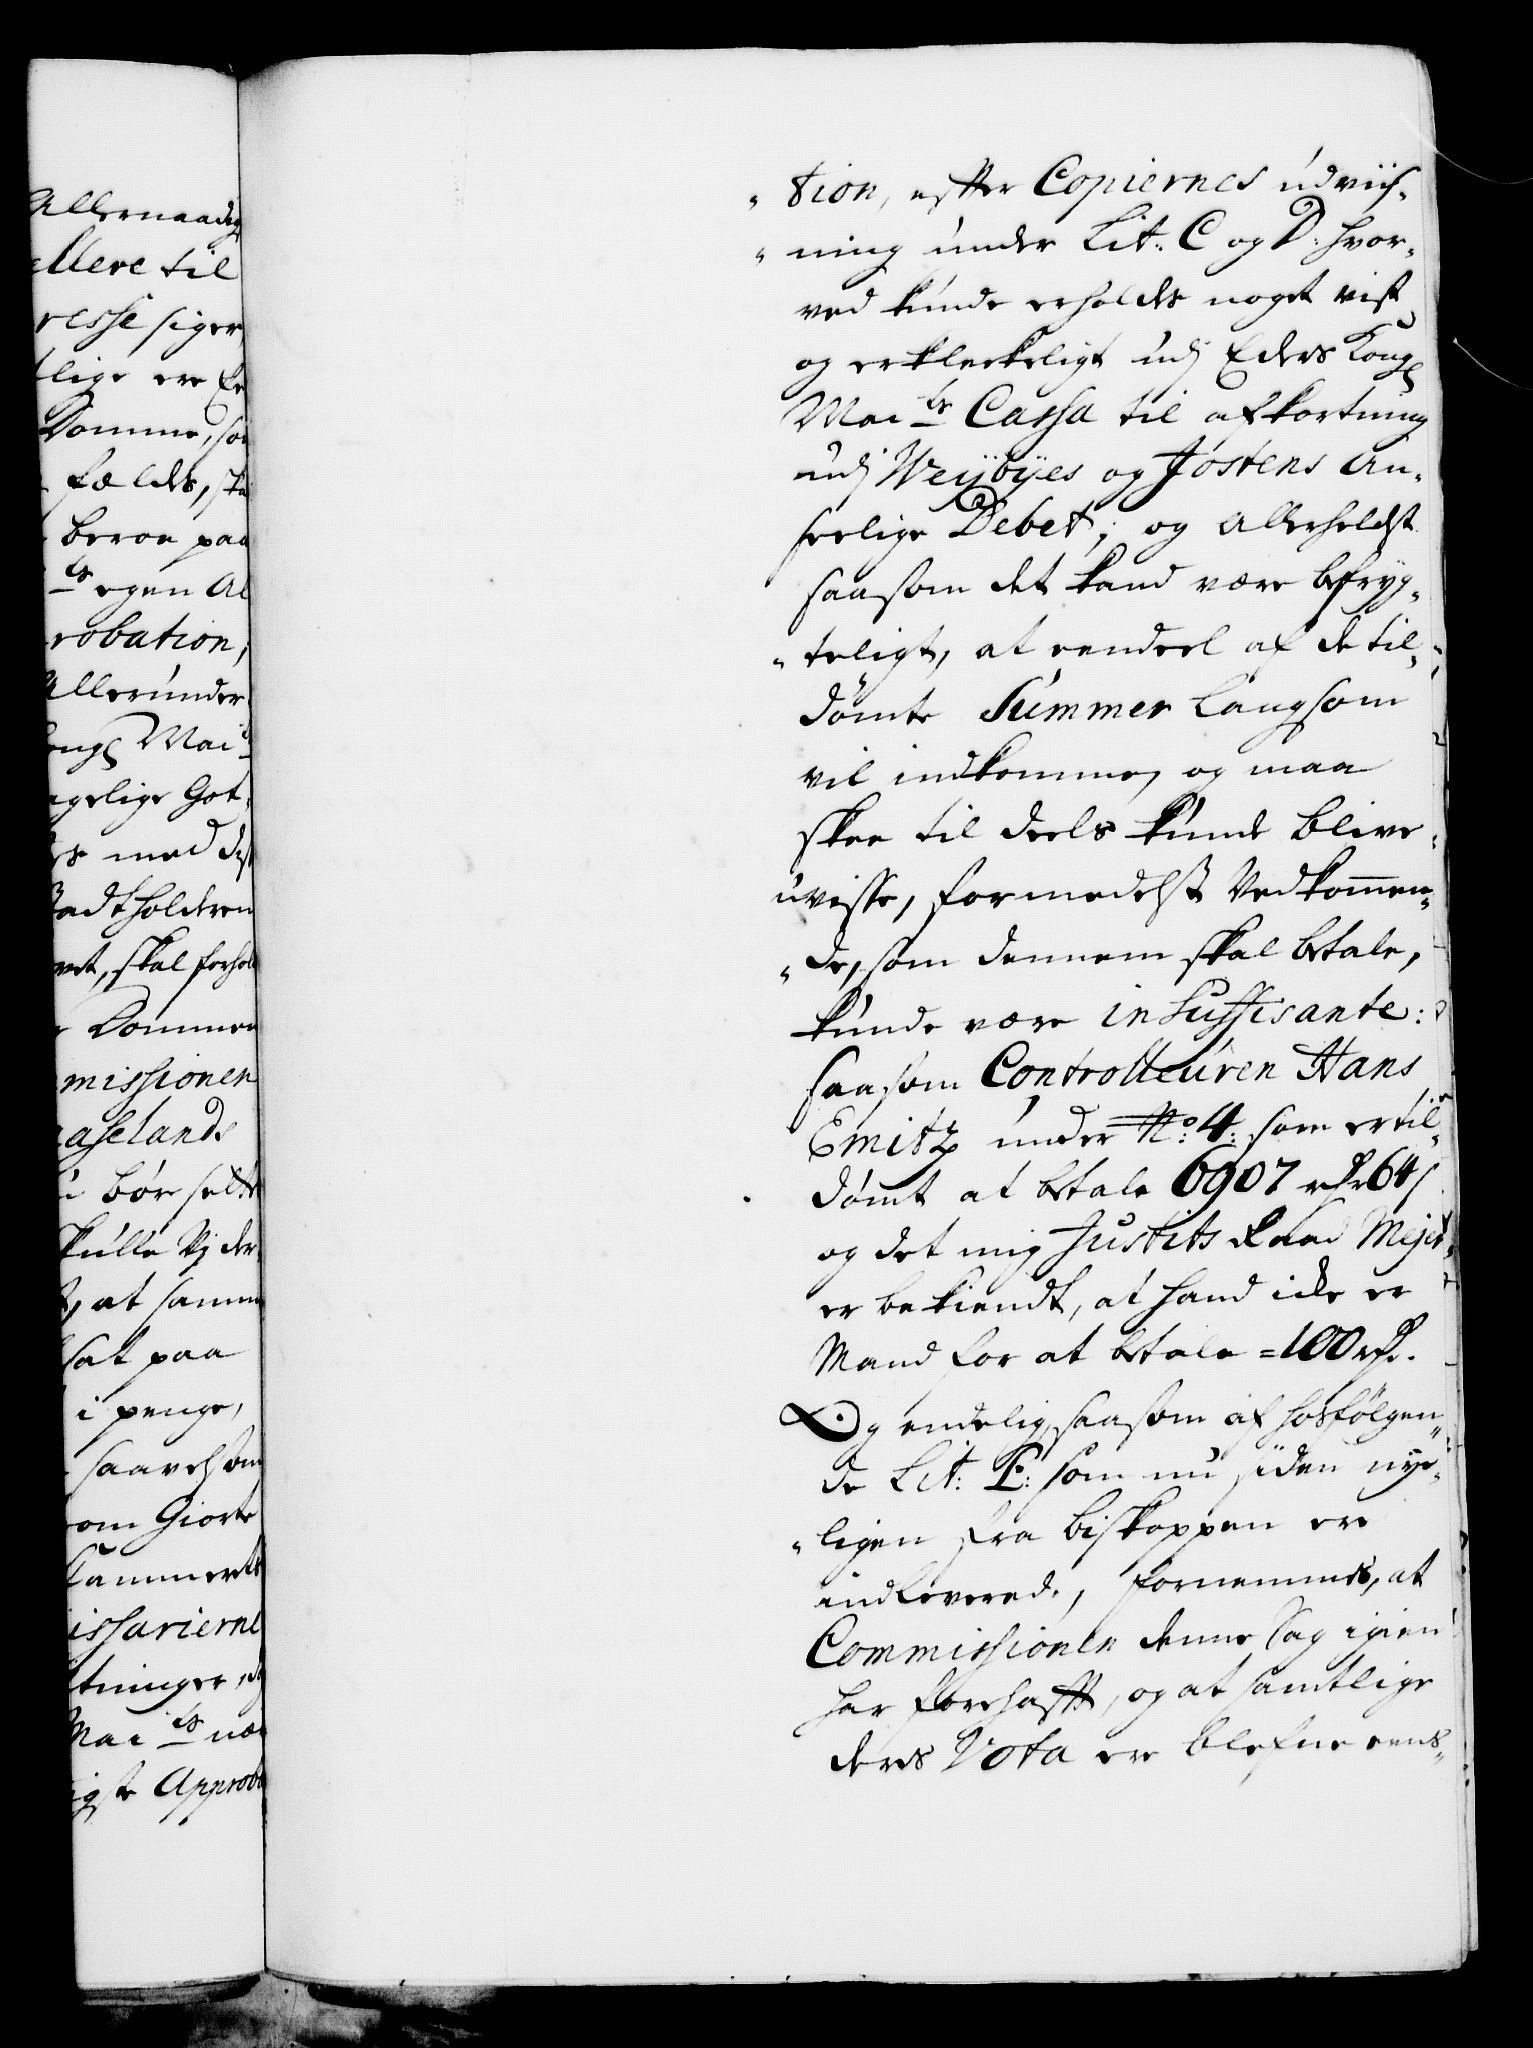 Allernaadig
ellere til
resse siger,
tlige ere Er
Domme, som
fældes, ska
beroe paa
ts egen Al
robation,
Allerunder
ongl Mai
agelige Got
med
tadtholderen
vet, skal forhol
Dommen
missionen
aaselands
bør
skulle Vj der
at samme
sat paa
i penge,
saavelsom
om Giorte
Cammerets
issarierne
tninger, og
Mai ts
igste Approba
"tion, effter Copiernes udviis-
"ning under Lit: C og D: hvor-
ved kunde erholdes noget vist
og erkleckeligt udj Eders Kongl
Mai ts Cassa til afkortning
udj Weybyes og Jostens An-
seelige Debet; og Allerheldst
saasom det kand være befryg-
"teligt, at eendeel af de til-
dömte Summer langsom
vil indkomme, og maa
skee til deels kunde blive
uvisse, formedelst Vedkommen-
"de, som dennem skal betale,
kunde være insuffisante:
saasom Controlleuren Hans
Emitz under No: 4: som er til-
dömt at betale 6907 rdr 64 s
og det mig Justits Raad Mejer
er bekiendt, at hand icke er
Mand for at betale =100 rdr.
Og endelig, saasom af hosfölgen-
de Lit: E: som nu siden nye-
"ligen fra Biskoppen ere
indleverede, fornemmes, at
Commissionen denne Sag igien
har forehafft, og at samtlige
deres Vota ere blefne eens-